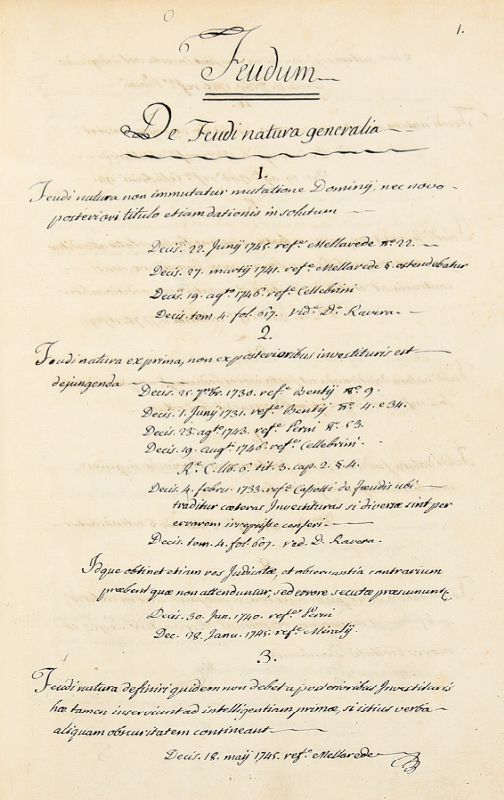 1.
Feudum
De Feudi natura generalia
1.
Feudi natura non immutatur mutatione Dominij, nec novo
posteriori titulo etiam dationis in solutum
Decis. 22. Junij 1745. refᵉ. Mellarede nº 22.
Decis. 27. martij 1741. refᵉ. Mellarede §. ostendebatur
Decis. 19. agᵗᵒ 1746. refᵉ. Cellebrini
Decis. tom. 4. fol. 617. vidᵉ. Dⁿ. Ravera.
2.
Feudi natura ex prima, non ex posterioribus investituris est
dejungenda
Decis. 25. 7mbr. 1730. refᵉ. Bentij nº. 9.
Decis. 1. Junij 1731. refᵉ. Bentij nº. 4. e 34.
Decis. 23. agᵗᵒ 1743. refᵉ. Perni nº. 53.
Decis. 19. augᵗⁱ 1746. refᵉ. Cellebrini
R. C. lib. 6. tit. 3. cap. 2. §. 4.
Decis. 4. febru. 1733. refᵉ. Capolli de foeudis ubi
traditur cæteras Investituras si diversæ sint per
errorem irrepsisse censeri.
Decis. tom. 4. fol. 607. ved. D. Ravera.
Idque obtinet etiam res Judicatæ, et observantia contrarium
præbent quæ non attenduntur, sed errore secutæ præsumuntᵣ
Decis. 30. Jun. 1740. refᵉ. Perni
Dec. 28. Janu. 1745. refᵉ.
3.
Feudi natura definiri quidem non debet a posterioribus Investituris
hæ tamen inserviunt ad intelligentiam primæ, si istius verba
aliquam obscuritatem contineant
Decis. 18. maij 1745. refᵉ. Mellarede